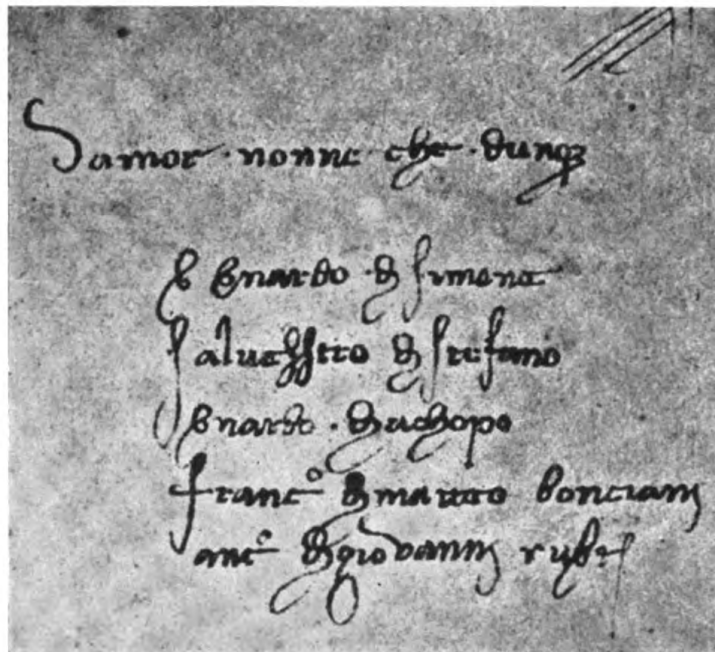 Samor · nonne che · dunqz
Bnardo · di simone
saluestro di stefano
bnardo · diachopo
franc° di marcho bonciani
anc° di giovanni